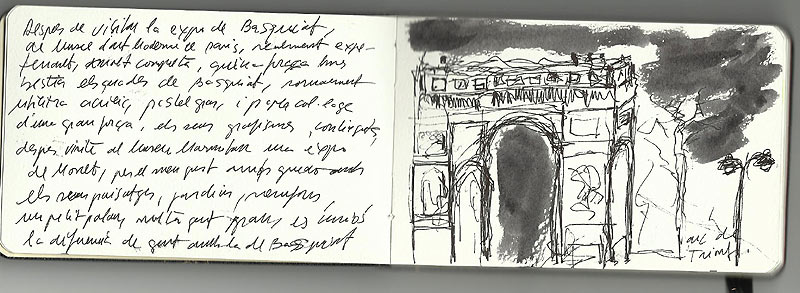 Despres de visitar la expo de Basquiat,
al Museu d'art Moderne de Paris, realment expe-
, molt completa, quina força
bestia els quadres de Basquiat, normalment
utilitza acrílic, pastel gras, i paper col·lage
d'una gran força, els seus grafismes,
despres visita al Museu Marmottan una expo
de Monet, per el meu gust amb
els seus paisatges, jardins, nenufars
un petit palau, molta gent gran, es
la diferencia de gent amb la de Basquiat
arc de
Triomf.